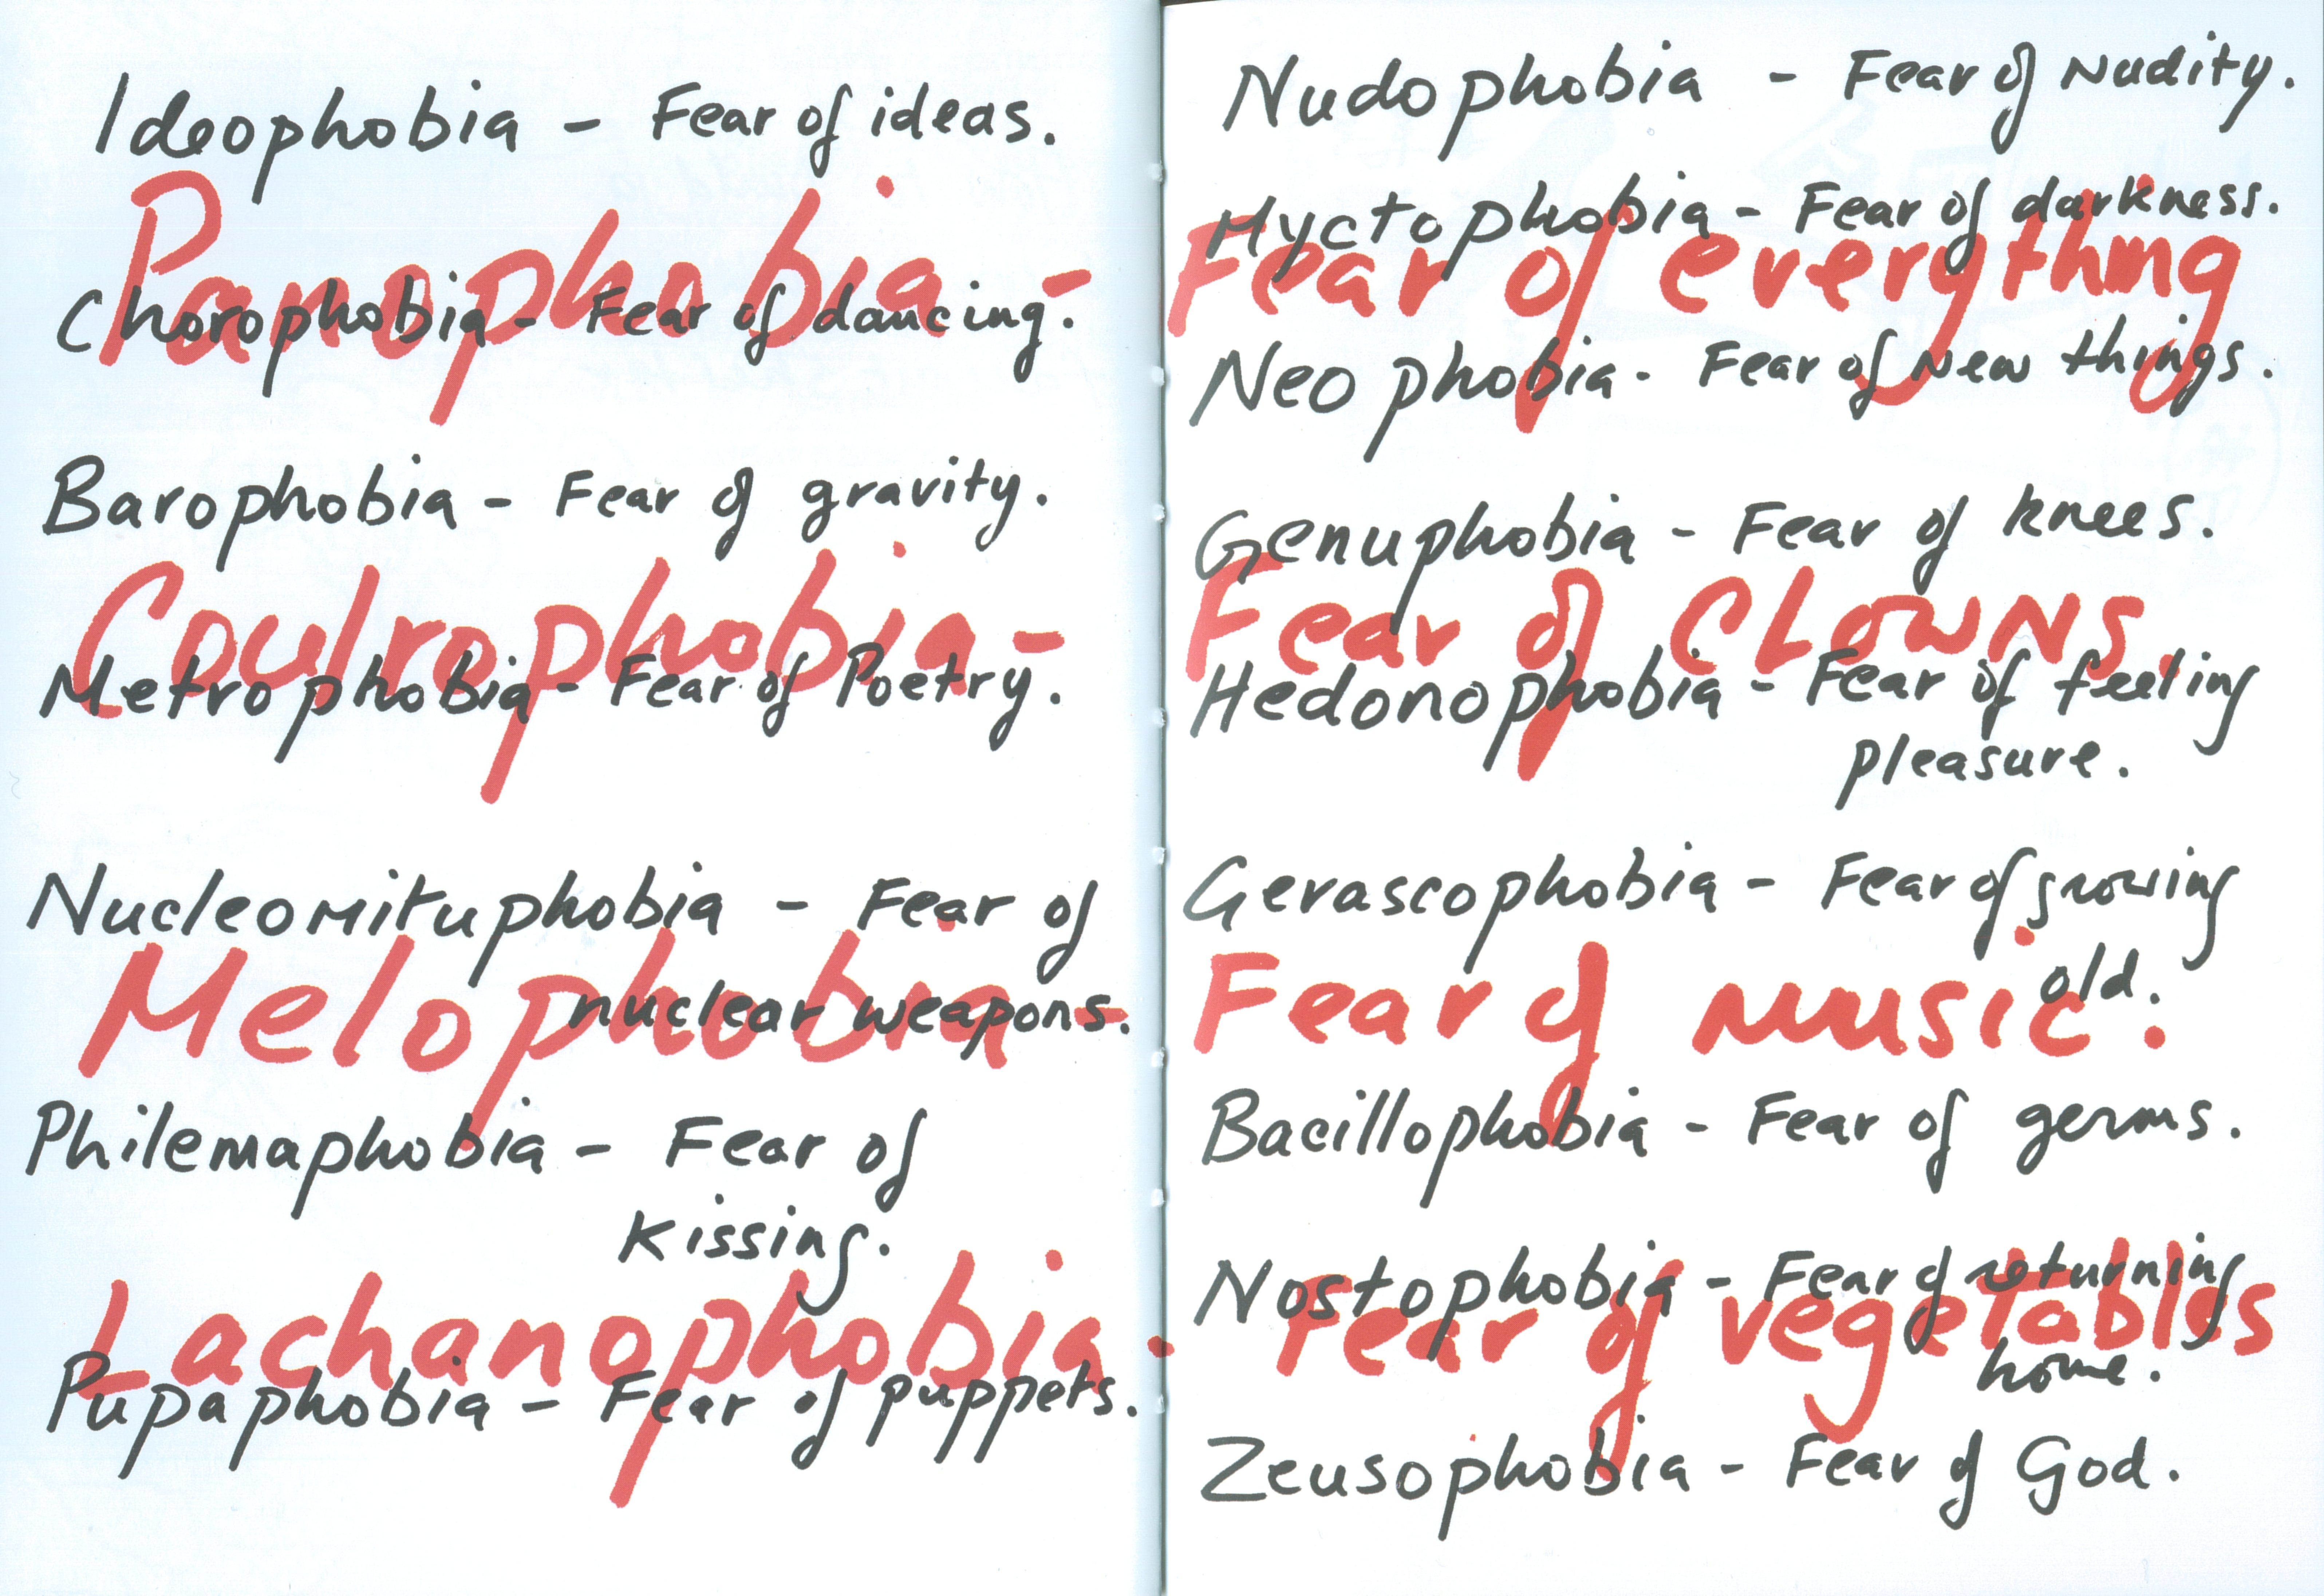 Ideophobia - Fear of ideas.
Panophobia -
Chorophobia - Fear of dancing.
Barophobia - Fear of gravity.
Coulrophobia -
Metrophobia - Fear of Poetry.
Nucleomituphobia - Fear of
Melophobia -
nuclear weapons.
Philemaphobia - Fear of
kissing.
Lachanophobia -
Pupaphobia - Fear of puppets.
Nudophobia - Fear of Nudity.
Myctophobia - Fear of darkness.
Fear of everything
Neophobia - Fear of New things.
Genuphobia - Fear of knees.
Fear of CLOWNS.
Hedonophobia - Fear of feeling
pleasure.
Gerascophobia - Fear of growing
old.
Fear of music.
Bacillophobia - Fear of germs.
Nostophobia - Fear of returning
Fear of vegetables
home.
Zeusophobia - Fear of God.